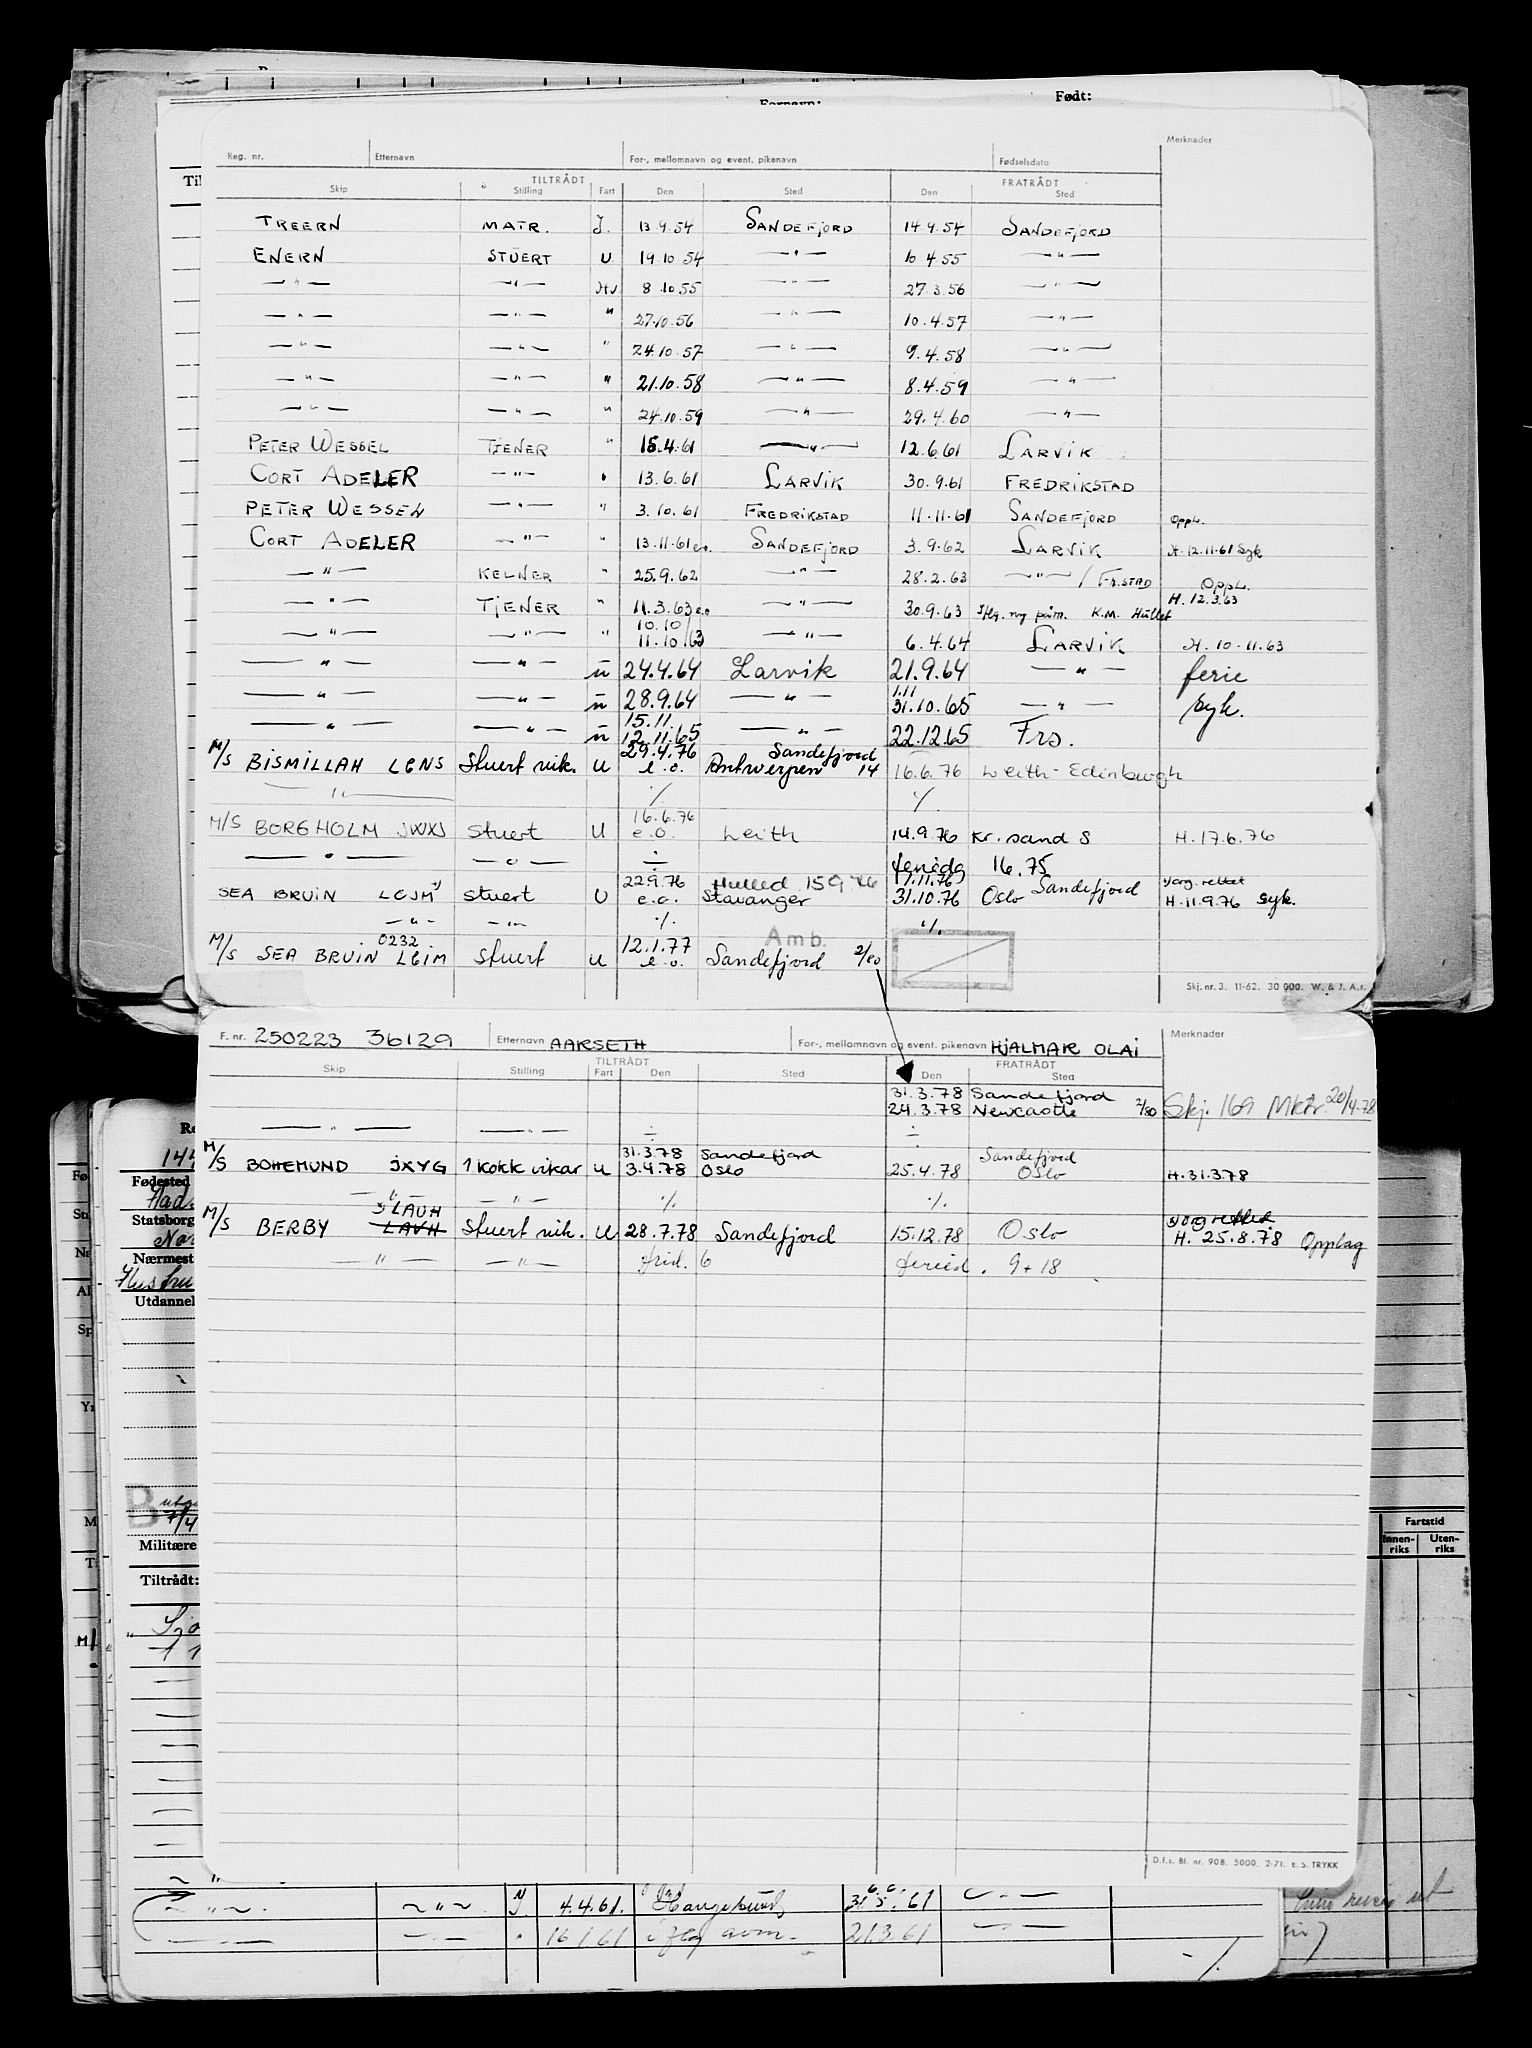 Fornavn: Født:
Reg. nr. Etternavn For-, mellomnavn og event. pikenavn Fødselsdato Merknader
TILTRÅDT FRATRÅDT
Skip Stilling Fart Den Sted Den Sted
TREERN MATR. J. 13.9.54 SANDEFJORD 14.9.54 SANDEFJORD
ENERN STUERT U. 19.10.54 —"— 10.4.55 —"—
—"— —"— Hv. 8.10.55 —"— 27.3.56 —"—
—"— —"— " 27.10.56 —"— 10.4.57 —"—
—"— —"— " 24.10.57 —"— 9.4.58 —"—
—"— —"— " 21.10.58 —"— 8.4.59 —"—
—"— —"— " 24.10.59 —"— 29.4.60 —"—
PETER WESSEL TJENER " 15.4.61 —"— 12.6.61 LARVIK
CORT ADELER —"— " 13.6.61 LARVIK 30.9.61 FREDRIKSTAD
PETER WESSEL —"— " 3.10.61 FREDRIKSTAD 11.11.61 SANDEFJORD Oppl.
CORT ADELER —"— " 13.11.61 e.o. SANDEFJORD 3.9.62 LARVIK H.12.11.61 Syk
—"— KELNER " 25.9.62 —"— 28.2.63 —"— / FR.STAD Oppl.
—"— TJENER " 11.3.63 e.o. —"— 30.9.63 K.M. Hullet H. 12.3.63
10.10
—"— —"— " 11.10.63 —"— 6.4.64 LARVIK H. 10.11.63
—"— —"— u 24.4.64 Larvik 21.9.64 —"— ferie
1.11
—"— —"— u 28.9.64 —"— 31.10.65 —"— syk.
15.11.
—"— —"— u 12.11.65 —"— 22.12.65 Frs.
29.4.76 Sandefjord
M/S BISMILLAH LENS Stuert vik. U e.o. Antwerpen 14 16.6.76 Leith-Edinburgh
—"— ./. ./.
16.6.76
M/S BORGHOLM JWXJ Stuert U e.o. Leith 14.9.76 Kr.sand S H. 17.6.76
—"— —"— ÷ feriedg 16.75
22.9.76 Hulled 15976 17.11.76 Sandefjord
SEA BRUIN LCJM stuert U e.o. Stavanger 31.10.76 Oslo H.11.9.76 syk.
—"— —"— ./. ./.
0232 12.1.77 Amb.
M/S SEA BRUIN LEIM Stuert U e.o. Sandefjord 2/80
Skj. nr. 3. 11-62. 30 000. W. & J. A.s.
F. nr. 250223 36129 Etternavn AARSETH For-, mellomnavn og event. pikenavn HJALMAR OLAI Merknader
TILTRÅDT FRATRÅDT
Skip Stilling Fart Den Sted Den Sted
31.3.78 Sandefjord
24.3.78 Newcastle 2/80 Skj. 169 Mktr. 20/4-78
—"— —"— ÷ ÷
31.3.78 Sandefjord Sandefjord
M/S BOHEMUND JXYG 1 kokk vikar U 3.4.78 Oslo 25.4.78 Oslo H.31.3.78
—"— —"— ./. ./.
JLAUH
M/S BERBY LAVH Stuert vik. U 28.7.78 Sandefjord 15.12.78 Oslo H. 25.8.78 Opplag
—"— —"— frid. 6 feried. 9 + 18
D.f.s. Bl. nr. 908. 5000. 2-71. E.S. TRYKK
Fødested
Statsborg
Nærmest
Utdannel
Militære
Tiltrådt:
Fartstid
Innen-riks Uten-riks
—"— —"— J. 4.4.61. Haugesund 31.5.61 —"—
—"— —"— " 16.1.61 21.3.61 —"—